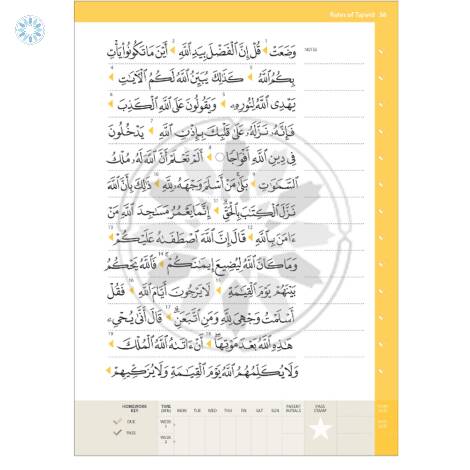 Rules of Tajwīd 38
NOTES
وَضَعَتْ ١ قُلْ إِنَّ ٱلْفَضْلَ بِيَدِ ٱللَّهِ ٢ أَيْنَ مَا تَكُونُوا۟ يَأْتِ
بِكُمُ ٱللَّهُ ٣ كَذَٰلِكَ يُبَيِّنُ ٱللَّهُ لَكُمُ ٱلْـَٔايَـٰتِ ٤
يَهْدِى ٱللَّهُ لِنُورِهِۦ ٥ وَيَقُولُونَ عَلَى ٱللَّهِ ٱلْكَذِبَ ٦
فَإِنَّهُۥ نَزَّلَهُۥ عَلَىٰ قَلْبِكَ بِإِذْنِ ٱللَّهِ ٧ يَدْخُلُونَ
فِى دِينِ ٱللَّهِ أَفْوَاجًا ٨ أَلَمْ تَعْلَمْ أَنَّ ٱللَّهَ لَهُۥ مُلْكُ
ٱلسَّمَـٰوَٰتِ ٩ بَلَىٰ مَنْ أَسْلَمَ وَجْهَهُۥ لِلَّهِ ١٠ ذَٰلِكَ بِأَنَّ ٱللَّهَ
نَزَّلَ ٱلْكِتَـٰبَ بِٱلْحَقِّ ١١ إِنَّمَا يَعْمُرُ مَسَـٰجِدَ ٱللَّهِ مَنْ
ءَامَنَ بِٱللَّهِ ١٢ قَالَ إِنَّ ٱللَّهَ ٱصْطَفَىٰهُ عَلَيْكُمْ ١٣
وَمَا كَانَ ٱللَّهُ لِيُضِيعَ إِيمَـٰنَكُمْ ١٤ فَٱللَّهُ يَحْكُمُ
بَيْنَهُمْ يَوْمَ ٱلْقِيَـٰمَةِ ١٥ لَا يَرْجُونَ أَيَّامَ ٱللَّهِ ١٦ فَقُلْ
أَسْلَمْتُ وَجْهِىَ لِلَّهِ وَمَنِ ٱتَّبَعَنِ ١٧ قَالَ أَنَّىٰ يُحْىِۦ
هَـٰذِهِ ٱللَّهُ بَعْدَ مَوْتِهَا ١٨ أَنْ ءَاتَىٰهُ ٱللَّهُ ٱلْمُلْكَ ١٩
وَلَا يُكَلِّمُهُمُ ٱللَّهُ يَوْمَ ٱلْقِيَـٰمَةِ وَلَا يُزَكِّيهِمْ
HOMEWORK KEY TIME (MIN) MON TUE WED THU FRI SAT SUN PARENT INITIALS PASS STAMP
DUE WEEK 1
PASS WEEK 2